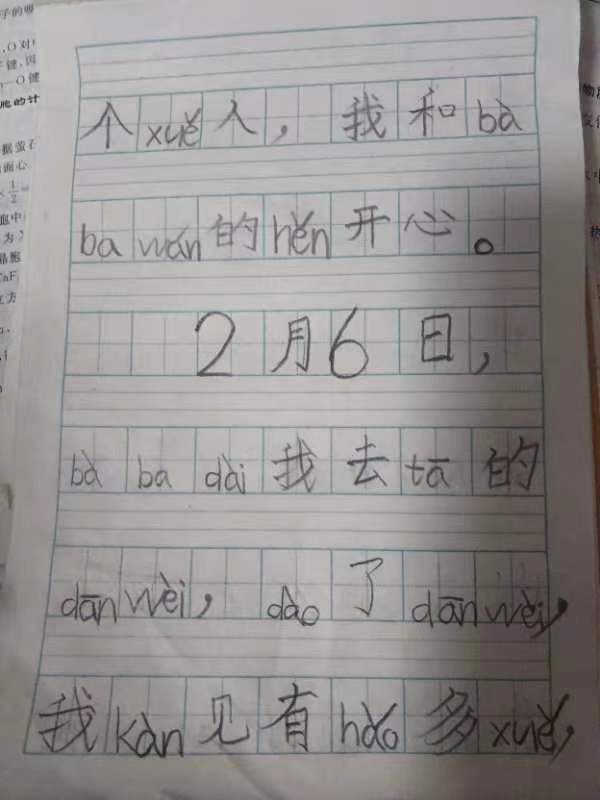 个xuě人，我和bà
ba wán的hěn开心。
2月6日，
bà ba dài我去tā的
dān wèi，dào了dān wèi，
我kàn见有hǎo多xuě，